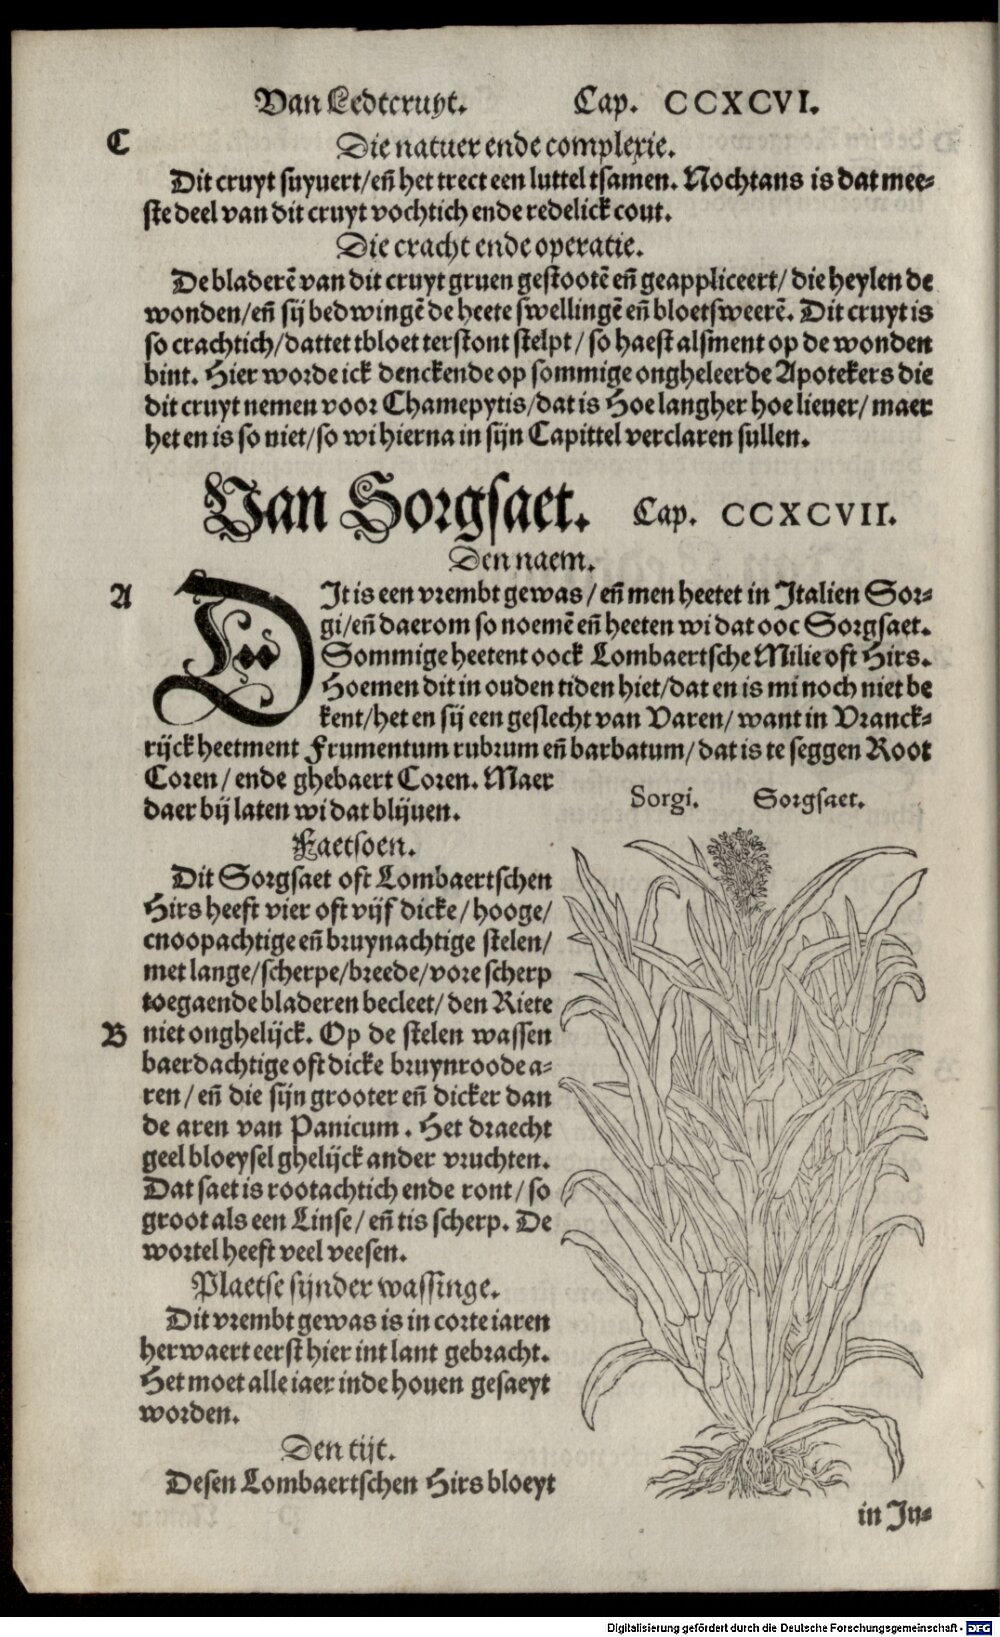 Van Ledtcruyt. Cap. CCXCVI.
C
Die natuer ende complexie.
Dit cruyt suyuert/ eñ het trect een luttel tsamen. Nochtans is dat mee-
ste deel van dit cruyt vochtich ende redelick cout.
Die cracht ende operatie.
De bladerē van dit cruyt gruen gestootē eñ geappliceert/ die heylen de
wonden/ eñ sij bedwingē de heete swellingē eñ bloetsweerē. Dit cruyt is
so crachtich/ dattet tbloet terstont stelpt/ so haest alsment op de wonden
bint. Hier worde ick denckende op sommige ongheleerde Apotekers die
dit cruyt nemen voor Chamepytis/ dat is Hoe langher hoe lieuer/ maer
het en is so niet/ so wi hierna in sijn Capittel verclaren sullen.
Van Sorgsaet. Cap. CCXCVII.
Den naem.
A
DIt is een vrembt gewas/ eñ men heetet in Italien Sor-
gi/ eñ daerom so noemē eñ heeten wi dat ooc Sorgsaet.
Sommige heetent oock Lombaertsche Milie oft Hirs.
Hoemen dit in ouden tiden hiet/ dat en is mi noch niet be
kent/ het en sij een geslecht van Varen/ want in Vranck-
rijck heetment Frumentum rubrum eñ barbatum/ dat is te seggen Root
Coren/ ende ghebaert Coren. Maer
daer bij laten wi dat blijuen.
Sorgi. Sorgsaet.
Faetsoen.
Dit Sorgsaet oft Lombaertschen
Hirs heeft vier oft vijf dicke/ hooge/
cnoopachtige eñ bruynachtige stelen/
met lange/ scherpe/ breede/ vore scherp
toegaende bladeren becleet/ den Riete
B
niet onghelijck. Op de stelen wassen
baerdachtige oft dicke bruynroode a-
ren/ eñ die sijn grooter eñ dicker dan
de aren van Panicum. Het draecht
geel bloeysel ghelijck ander vruchten.
Dat saet is rootachtich ende ront/ so
groot als een Linse/ eñ tis scherp. De
wortel heeft veel veesen.
Plaetse sijnder wassinge.
Dit vrembt gewas is in corte iaren
herwaert eerst hier int lant gebracht.
Het moet alle iaer inde houen gesaeyt
worden.
Den tijt.
Desen Lombaertschen Hirs bloeyt
in In-
Digitalisierung gefördert durch die Deutsche Forschungsgemeinschaft - DFG